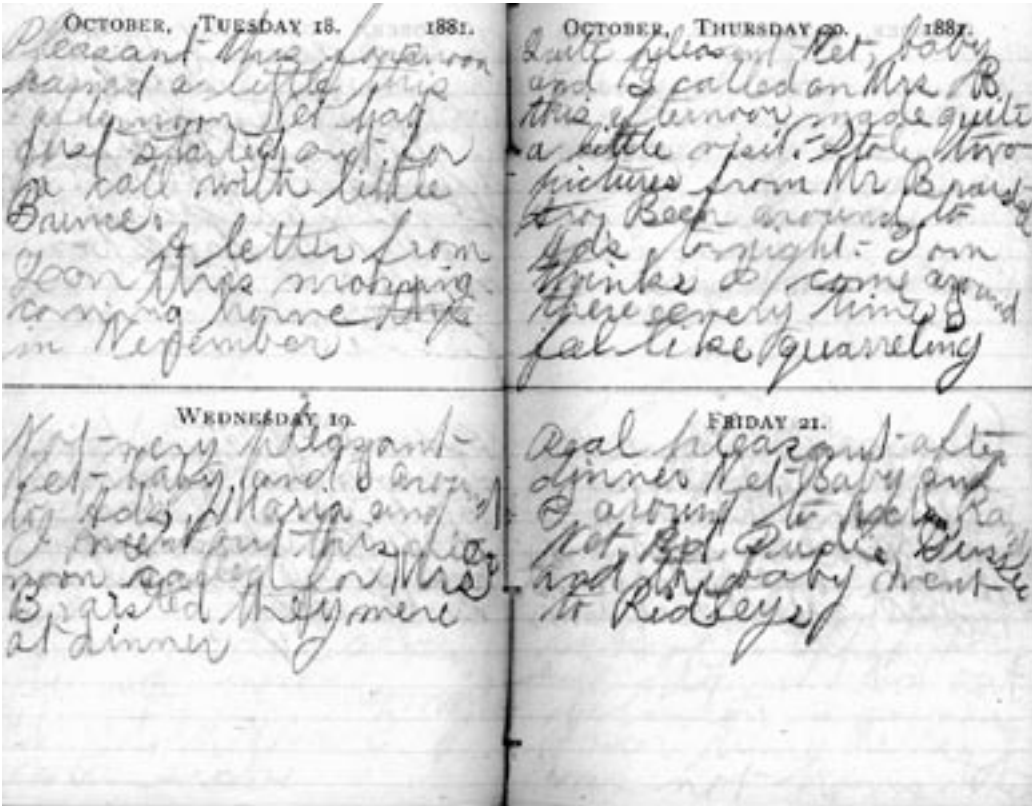 October, Tuesday 18. 1881.
Pleasant this forenoon
rained a little this
afternoon Net had
just started out for
a call with little
Bunce.
A letter from
Leon this morning.
coming home this
in November.
Wednesday 19.
Not very pleasant-
Net- baby and I around
to Ad's, Maria and
I went out this after
noon called for Mrs
Braisted they were
at dinner
October, Thursday 20. 1881.
Quite pleasant Net, baby
and I called on Mrs B.
this afternoon made quite
a little visit. Stole two
pictures from Mr Braisted
too Been around to
Ad's tonight. Tom
thinks I come around
there every time I
feel like quarreling
Friday 21.
Real pleasant after
dinner Net, Baby and
I around to
Net, Ad
and the baby went
to Ridleys